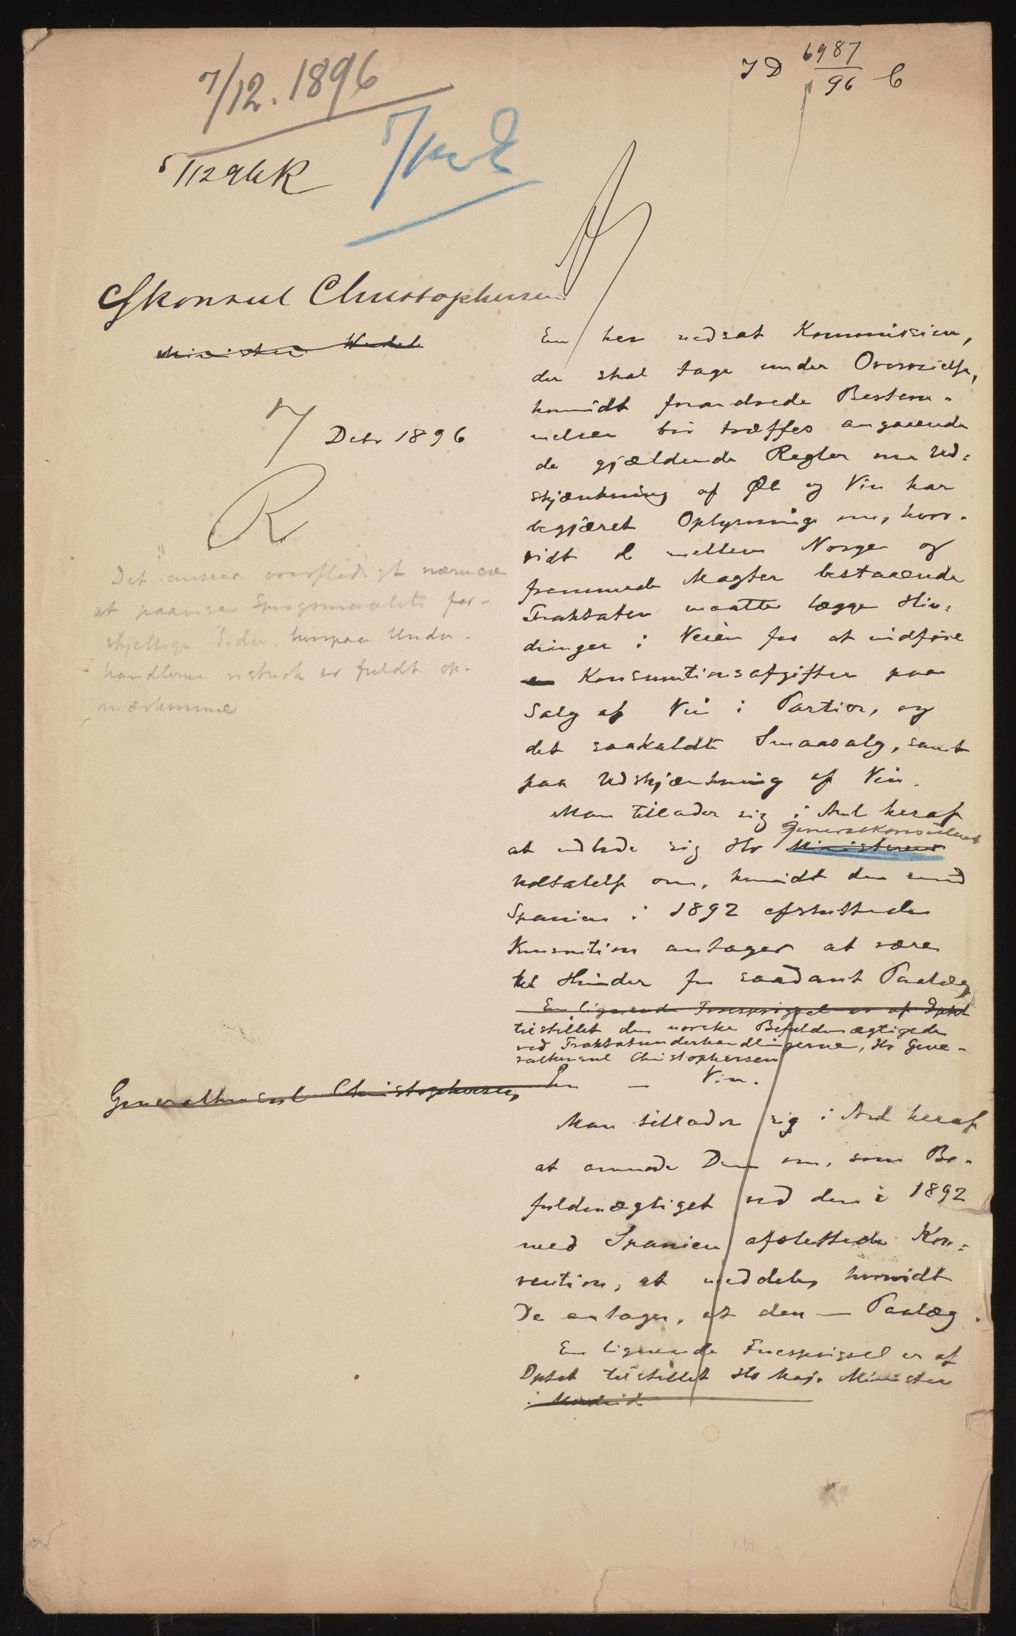 7/12. 1896
J D 6987/96 C
5/12 96 K
Gkonsul Christophersen
Minister Wedel
7 Decbr 1896
R
Det anseer overflødigt nærmere
at paavise Spørgsmaalets for-
skjellige Sider, hvorpaa Under-
handlerne vistnok er fuldt op-
mærksomme
En her nedsat Kommission,
der skal tage under Overveielse,
hvorvidt forandrede Bestem-
melser bør træffes angaaende
de gjældende Regler om Ud-
skjænkning af Øl og Vin har
begjæret Oplysning om, hvor-
vidt de mellem Norge og
fremmede Magter bestaaende
Traktater maatte lægge Hin-
dringer i Veien for at indføre
en Konsumtionsafgifter paa
Salg af Vin i Partier, og
det saakaldte Smaasalg, samt
paa Udskjænkning af Vin.
Man tillader sig i Anl heraf
Generalkonsulens
at udbede sig Hr Ministerens
Udtalelse om, hvorvidt den med
Spanien i 1892 afsluttede
Konvention antages at være
til Hinder for saadant Paalæg
En lignende Forespørgsel er af Dptet
tilstillet den norske Befuldmægtigede
ved Traktatunderhandlingerne, Hr Gene-
ralkonsul Christophersen
Generalkonsul Christophersen,
En — Vin.
Man tillader sig i Anl heraf
at anmode Dem om, som Be-
fuldmægtiget ved den i 1892
med Spanien afsluttede Kon-
vention, at meddele, hvorvidt
De antager, at den — Paalæg.
En lignende Forespørgsel er af
Dptet tilstillet Hs Maj. Minister
i Madrid